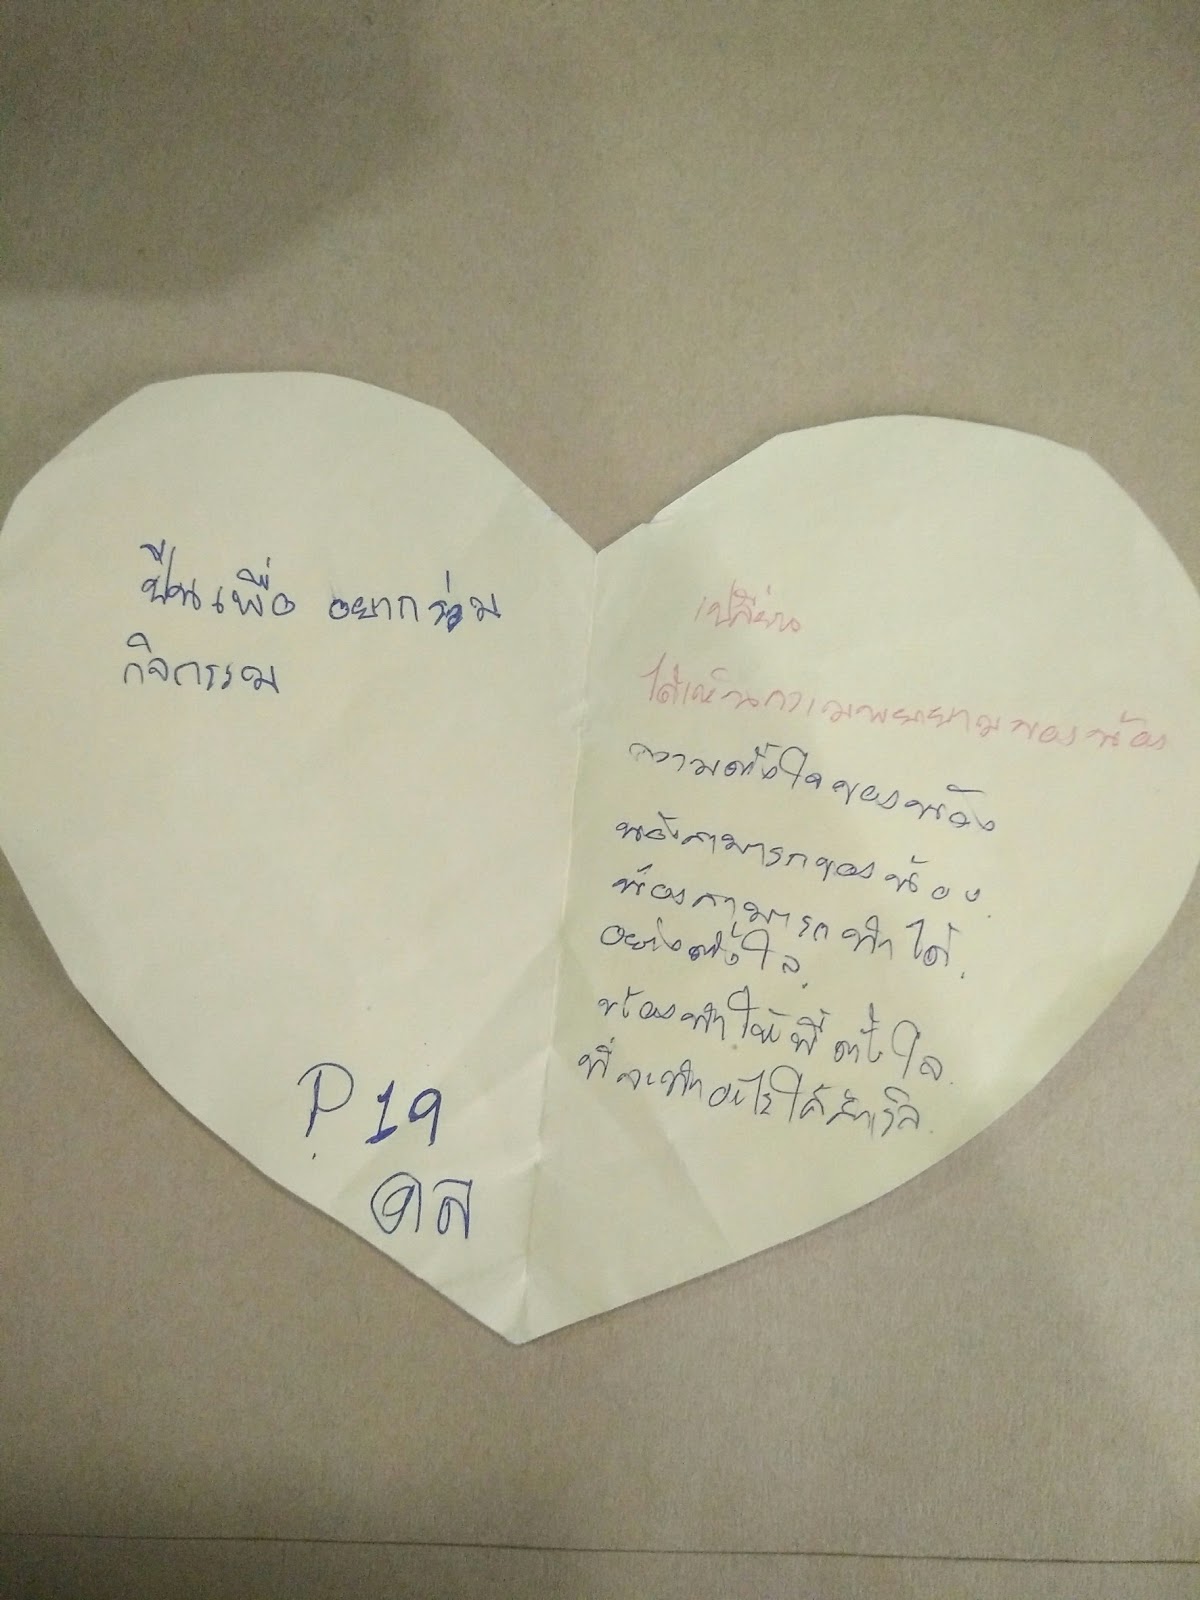 ปีนเพื่อ อยากร่วม
กิจกรรม
P 19
ดล
เปลี่ยน
ได้เห็นความพยายามของน้อง
ความตั้งใจของน้อง
สามารถของน้อง
น้องสามารถทำได้
อย่างตั้งใจ
น้องทำให้พี่ตั้งใจ
พี่จะทำอะไรให้สำเร็จ